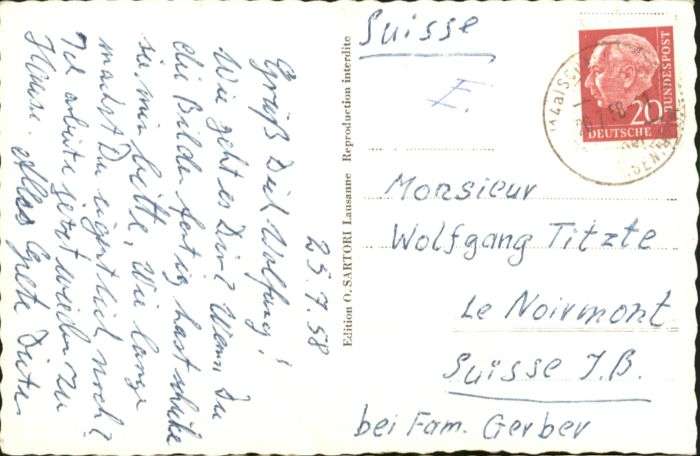 25.7.58
Grüß Dich Wolfgang!
Wie geht es Dir? Wenn Du
die Bilder fertig hast schicke
sie mir bitte. Wie lange
machst Du eigentlich noch?
Ich arbeite jetzt wieder zu
Hause. Alles Gute Dieter
Edition O. SARTORI Lausanne Reproduction interdite
Suisse
E.
20
DEUTSCHE
BUNDESPOST
Monsieur
Wolfgang Titzte
Le Noirmont
Suisse J.B.
bei Fam. Gerber